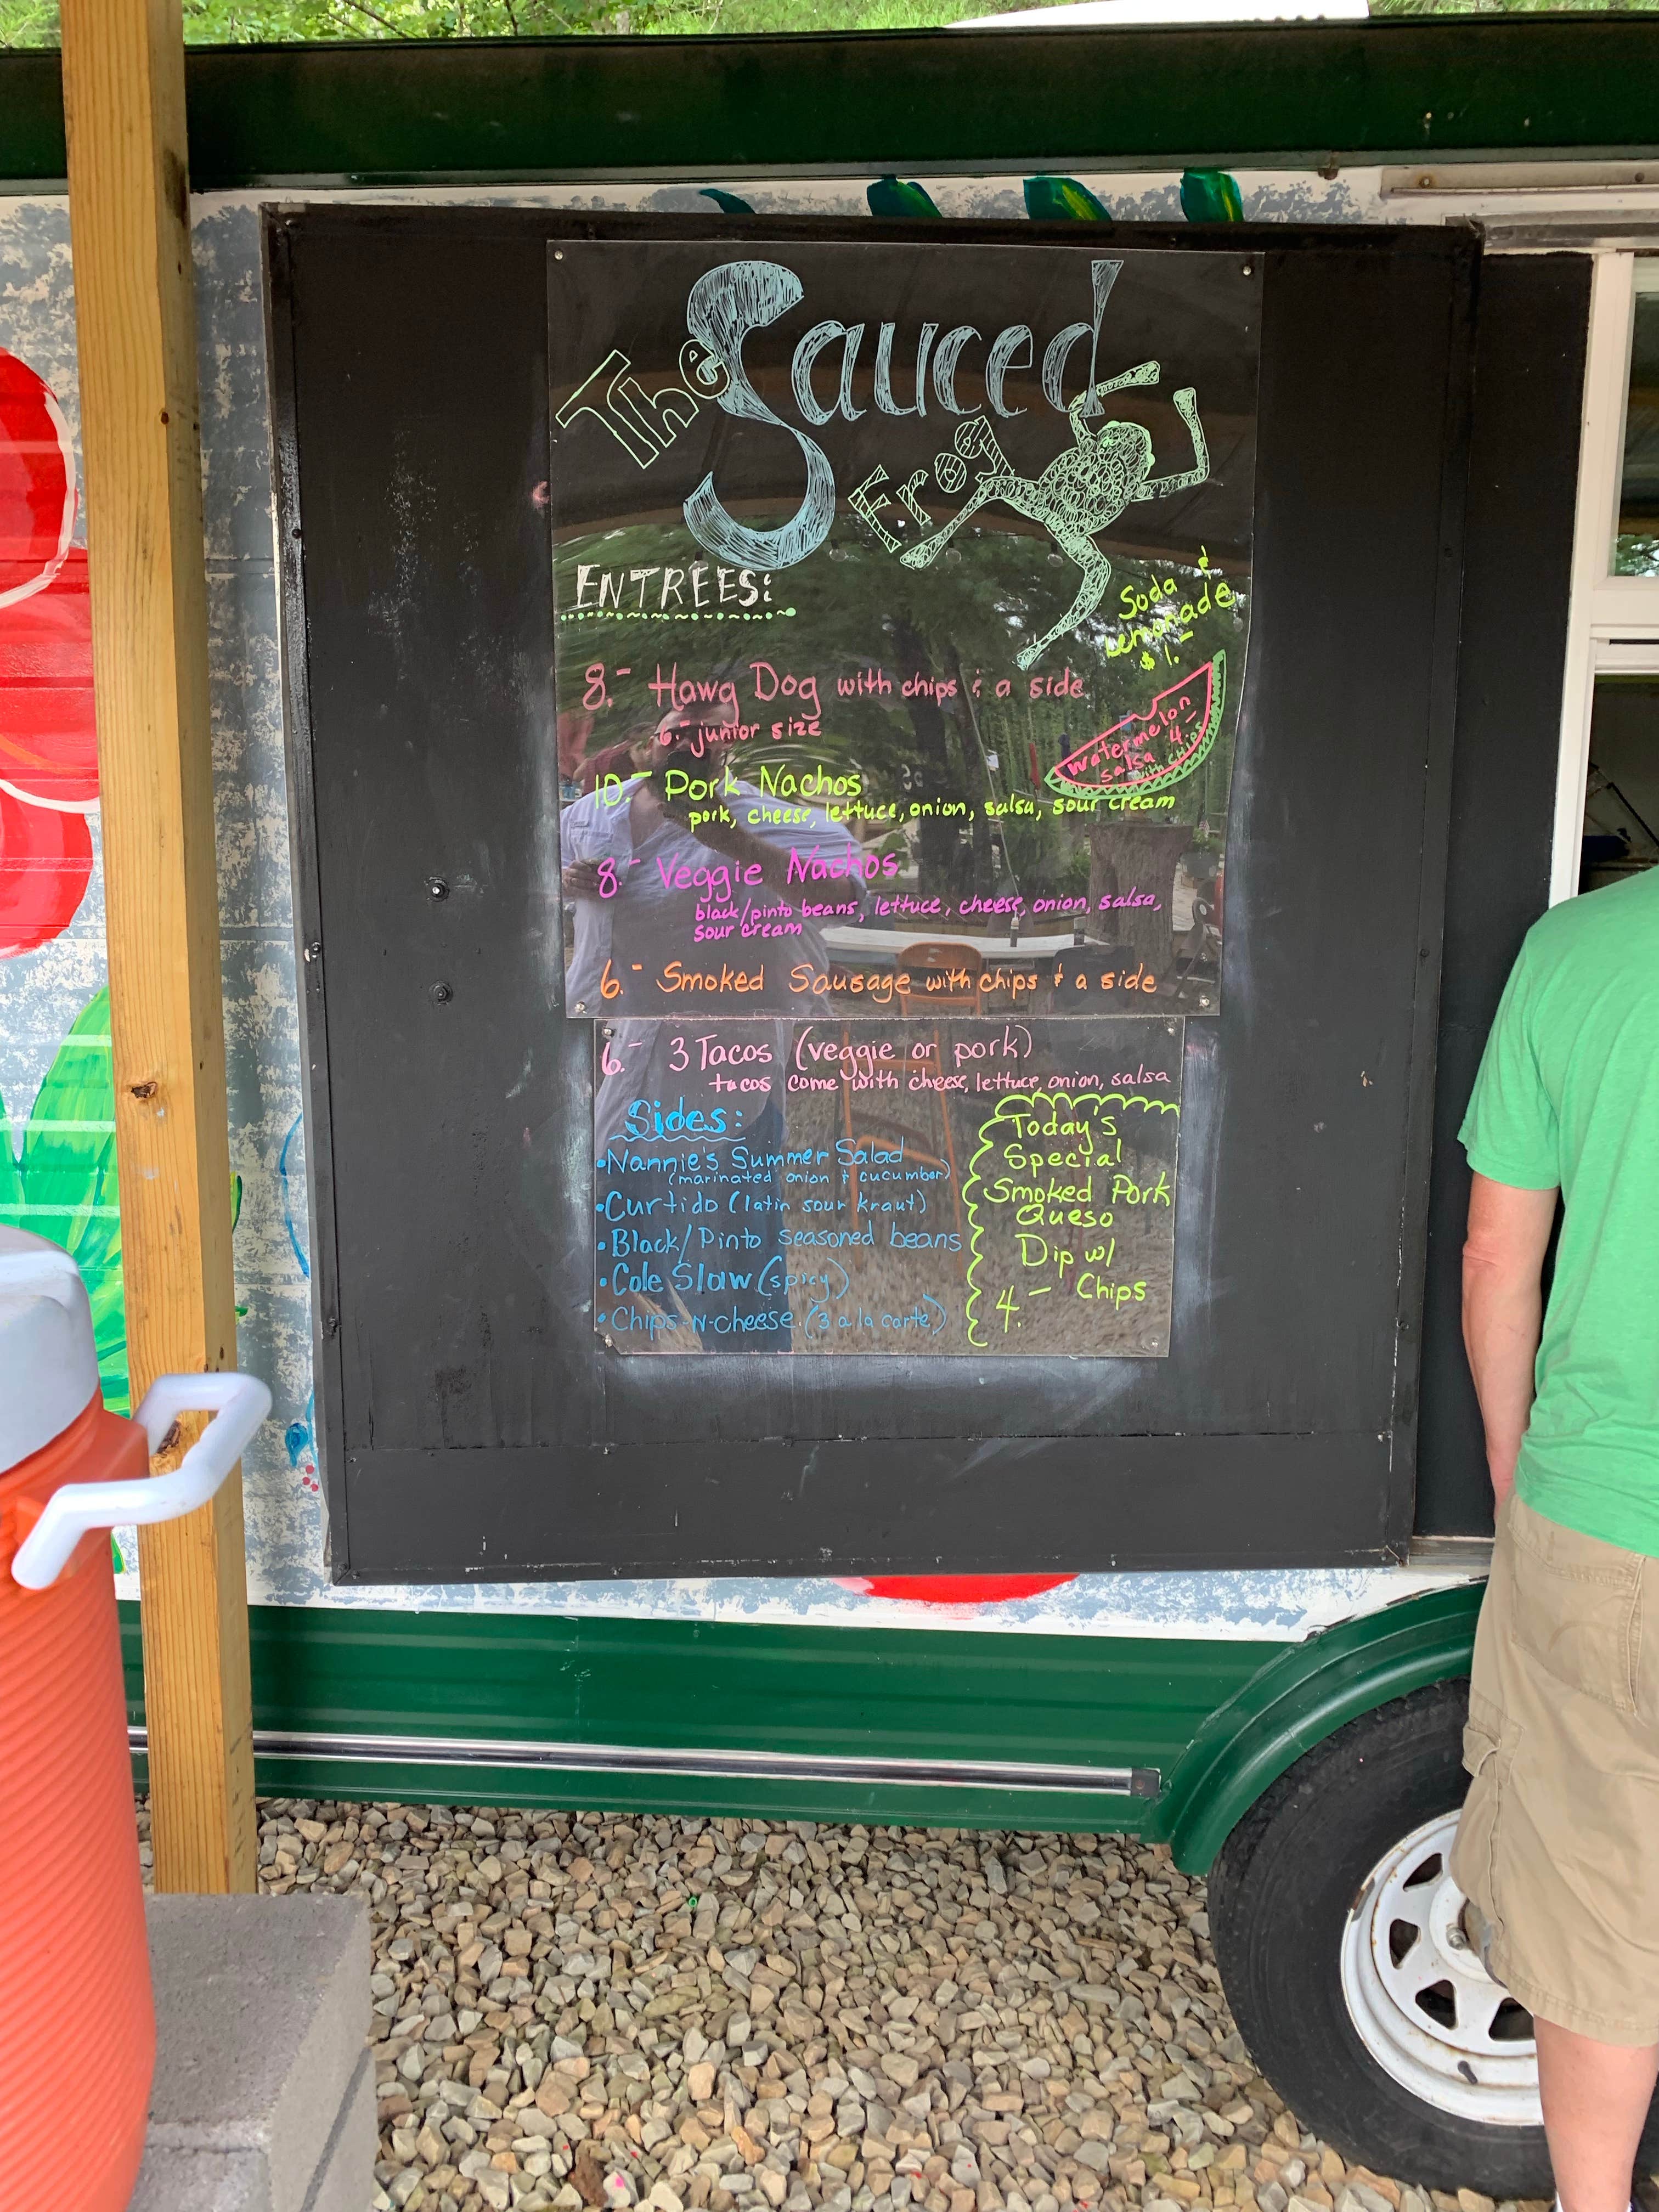 The Sauced
Frog
ENTREES:
Soda &
Lemonade
$1.-
8.- Hawg Dog with chips & a side
6.- junior size
watermelon
salsa 4.-
with chips
10.- Pork Nachos
pork, cheese, lettuce, onion, salsa, sour cream
8.- Veggie Nachos
black/pinto beans, lettuce, cheese, onion, salsa,
sour cream
6.- Smoked Sausage with chips & a side
6.- 3 Tacos (veggie or pork)
tacos come with cheese, lettuce, onion, salsa
Sides:
•Nannie's Summer Salad
(marinated onion & cucumber)
•Curtido (latin sour kraut)
•Black/Pinto seasoned beans
•Cole Slaw (spicy)
•Chips-N-Cheese (3 a la carte)
Today's
Special
Smoked Pork
Queso
Dip w/
4.- Chips